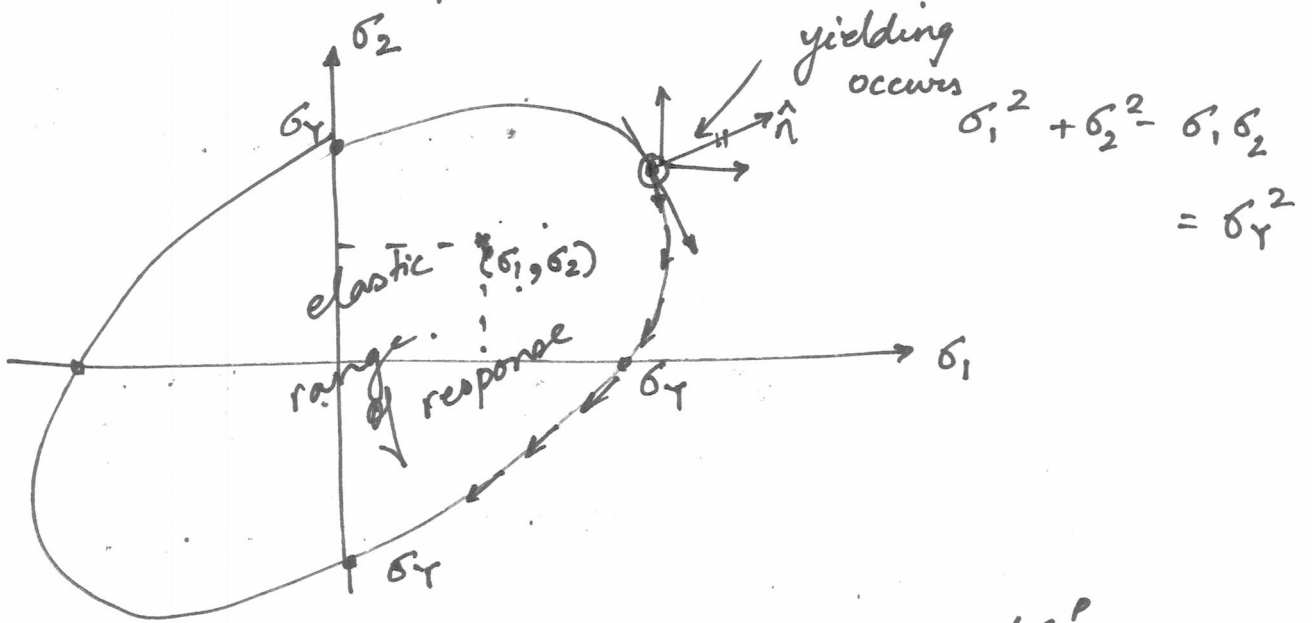 σ₂
yielding
occurs
σ_Y
n̂
σ₁² + σ₂² - σ₁ σ₂
= σ_Y²
elastic (σ₁, σ₂)
range of response
σ₁
σ_Y
σ_Y
p